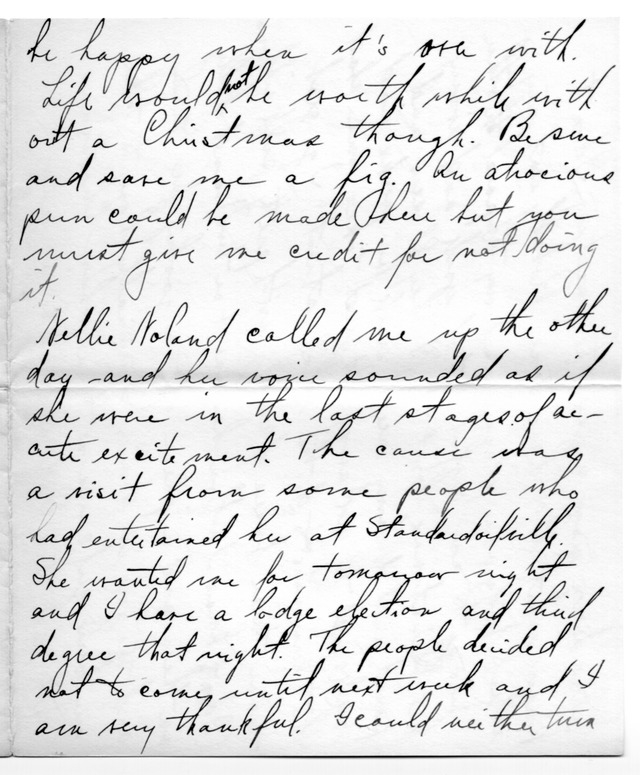 be happy when it's over with.
Life would not be worth while with
out a Christmas though. Be sure
and save me a fig. An atrocious
pun could be made here but you
must give me credit for not doing
it.
Nellie Noland called me up the other
day and her voice sounded as if
she were in the last stages of ac-
cute excitement. The cause was
a visit from some people who
had entertained her at Standardoilville.
She wanted me for tomorrow night
and I have a lodge election and third
degree that night. The people decided
not to come until next week and I
am very thankful. I could neither turn